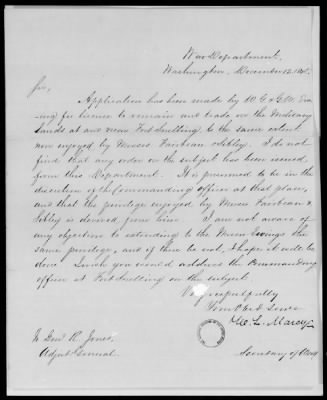 War Department.
Washington, December 12.
Sir,
Application has been made by W. G. & G. W. Ew-
ing for license to remain and trade, on the Military
Lands at and near Fort Snelling, to the same extent
now enjoyed by Messrs Faribeau & Sibley. I do not
find that any order on the subject has been issued
from this Department. It is presumed to be in the
discretion of the Commanding officer at that place,
and that the privilege enjoyed by Messrs Faribeau &
Sibley is derived from him. I am not aware of
any objection to extending to the Messrs Ewings the
same privilege, and if there be not, I hope it will be
done. I wish you would address the Commanding
officer at Fort Snelling on the subject.
Very respectfully
Your Obt Serv
W. L. Marcy
Secretary of War
To Genl R. Jones,
Adjut. General.